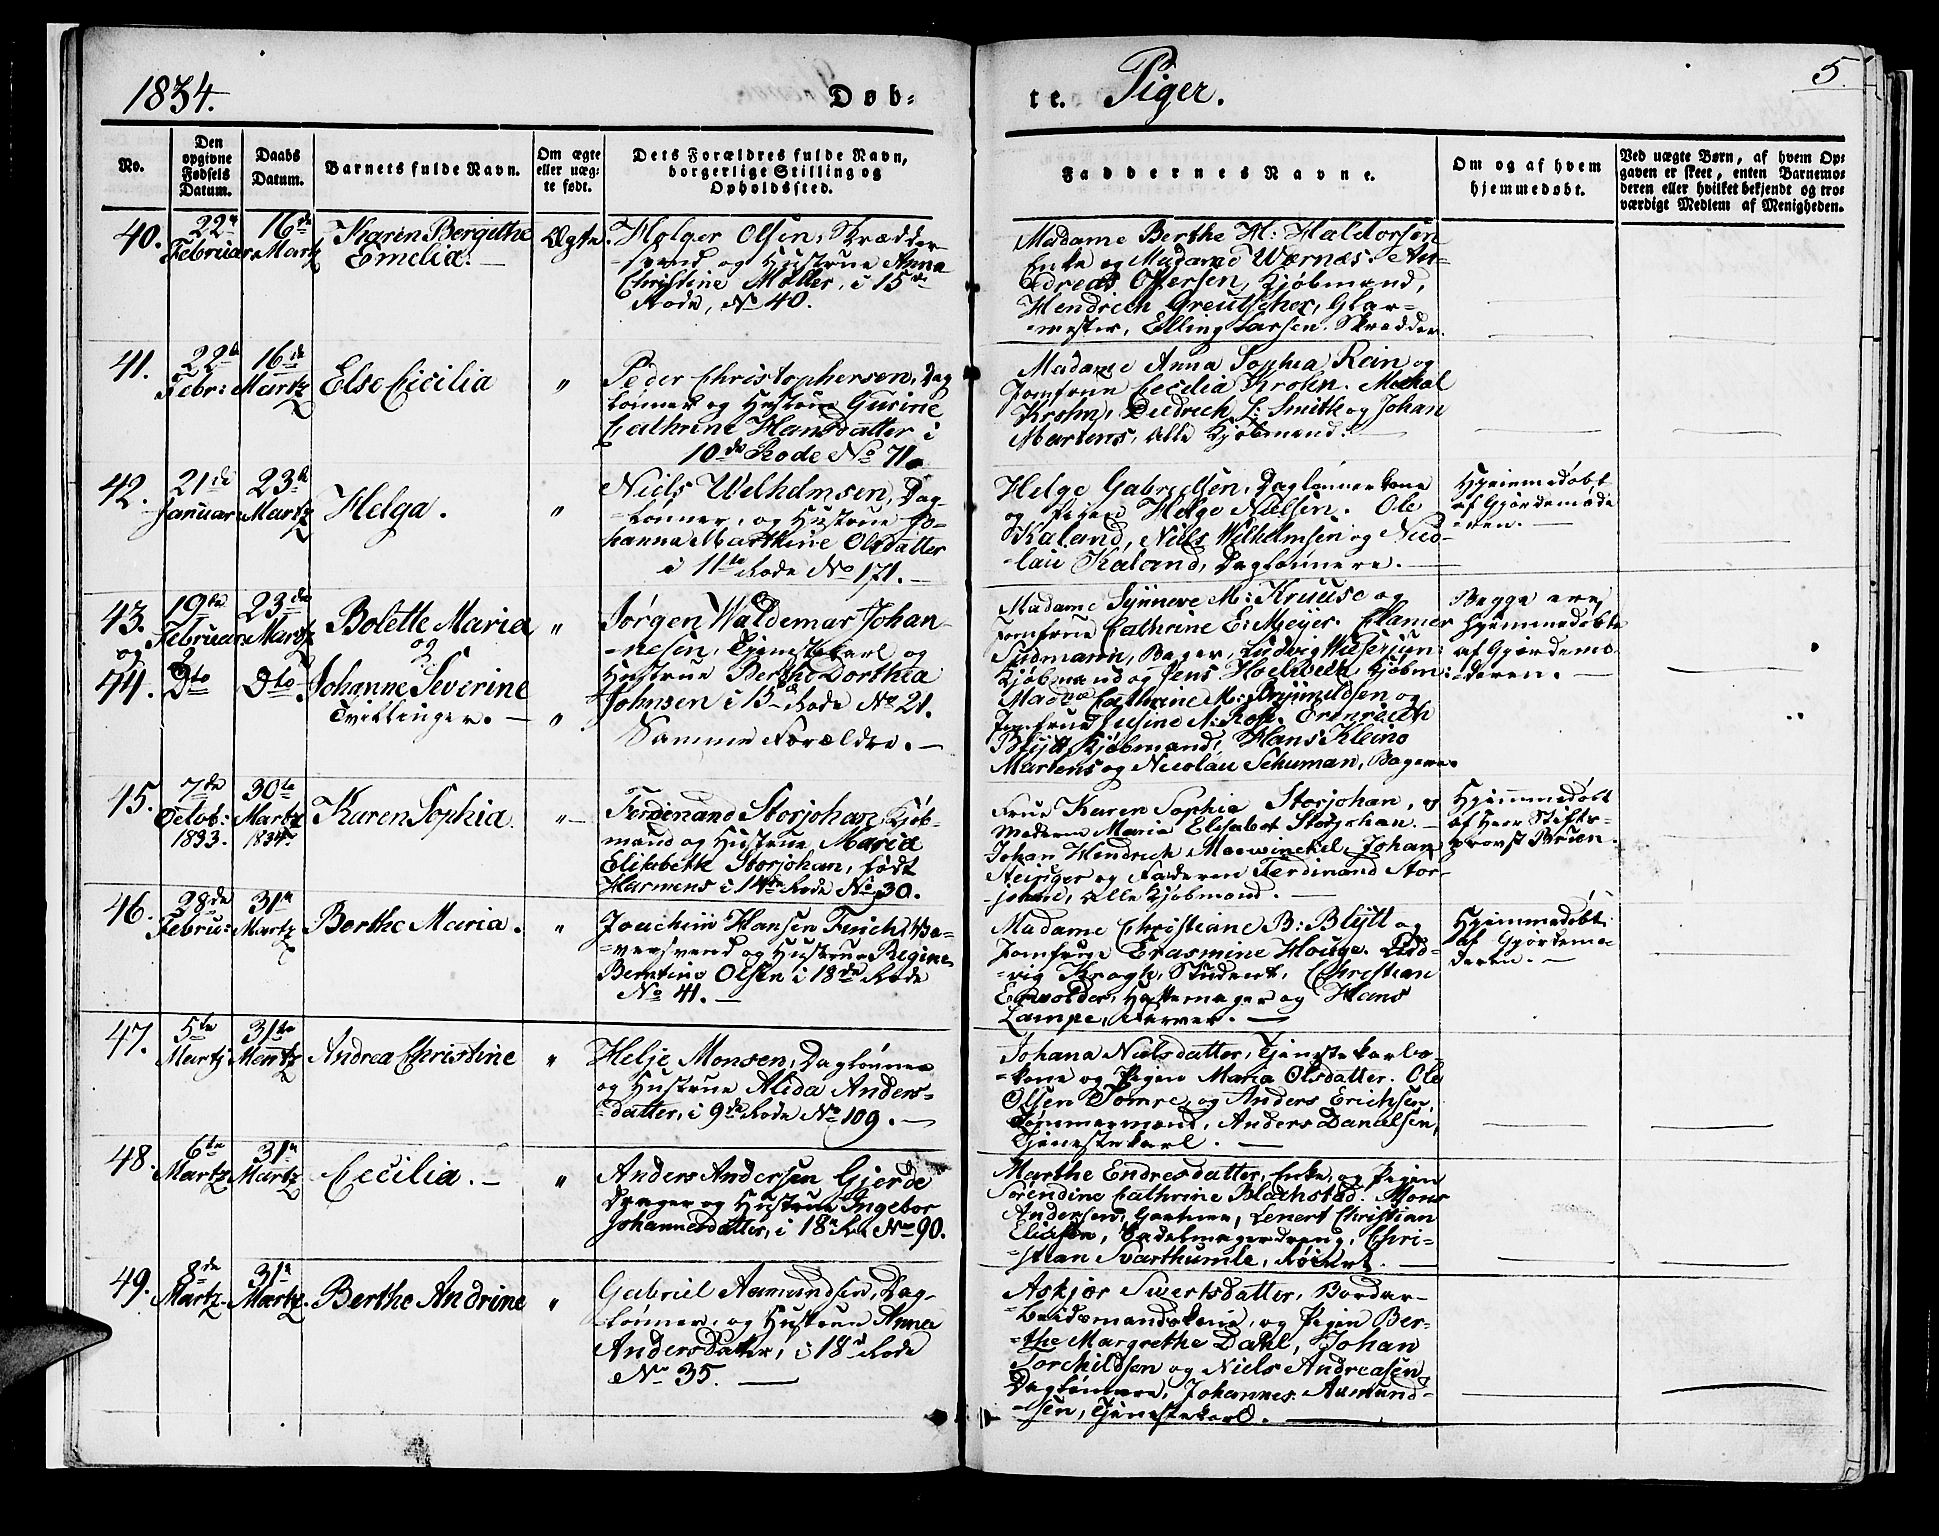 1834.
Döb-
te. Piger.
5.
No.
Den opgivne Fødsels Datum.
Daabs Datum.
Barnets fulde Navn.
Om ægte eller uægte født.
Dets Forældres fulde Navn, borgerlige Stilling og Opholdssted.
Faddernes Navne.
Om og af hvem hjemmedøbt.
Ved uægte Børn, af hvem Opgaven er skeet, enten Barnemoderen eller hvilket bekjendt og troværdigt Medlem af Menigheden.
40.
22de Februar
16de Martz
Karen Bergithe
Emelia. —
Ægte.
Holger Olsen, Skrædder
svend og Hustrue Anna
Christine Møller, i 15de
Rode, No 40.
Madame Berthe H: Haldorsen
Enke og Madame Wernæs. An-
dreas Ottersen, Kjøbmand,
Hendrich Greutscher, Glar-
mester, Elling Larsen. Skrædder.
41.
22de Febr:
16de Martz
Else Cicilia
"
Peder Christophersen, Dag
lønner og Hustrue Gurine
Cathrine Hansdatter i
10de Rode No 71.
Madame Anna Sophia Rein og
Jomfrue Cecilia Krohn. Michal
Krohn, Diedrich L: Smith og Johan
Martens, alle Kjøbmænd. —
42.
21de Januar
23de Martz
Helga.
"
Niels Welhelmsen, Dag-
lønner, og Hustrue Jo-
hanna Marthine Olsdatter
i 11te Rode No 171. —
Helge Gabrielsen, Daglønnerkone
og Pigen Helge Nielsen. Ole
Kaland, Niels Wilhelmsen og Nico-
lai Kaland, Daglønnere. —
Hjemmedøbt
af Gjordemode
ren. —
43.
og
44.
19de Februar
23de Martz
Dto
Dto
Bolette Maria
og
Johanne Severine
Tvillinger. —
"
"
Jørgen Waldemar Johan-
nesen, Tjenestekarl og
Hustrue Berthe Dorthea
Johnsen i 13de Rode No 21.
Samme Forældre. —
Madame Synneve M: Kruuse og
Jomfrue Cathrine E: Meyer. Clamer
Sudmann, Bager, Ludvig
Kjøbmand og Jens Holbech, Kjøbm:
Madme Cathrine M: Brynildsen og
Jomfrue
Blytt, Kjøbmand, Hans Kleino
Martens og Nicolai Schuman, Bagere.
Begge ere
Hjemmedøbte
af Gjordemo-
deren. —
45.
7de Octob: 1833.
30te Martz 1834.
Karen Sophia.
" —
Ferdinand Storjohan, Kjøb-
mand og Hustrue Maria
Elisabeth Storjohan, født
Harmens i 14de Rode No 30.
Frue Karen Sophie Storjohan, og
Moderen Maria Elisabet Storjohan. —
Johan Hendrich Meewinckel, Johan
og Faderen Ferdinand Stor-
johan, alle Kjøbmænd. —
Hjemmedøbt
af Herr Stifts-
provst Bruen.
46.
28de Febru:
31te Martz
Berthe Maria.
"
Joachim Hansen
versvend og Hustrue Regine
Berntine Olsen i 18de Rode
No 41. —
Madame Christiane B: Blytt og
Jomfrue Erasmine Houge. Lud-
vig Krogh, Student, Christian
og Hans
Lampe, Garver. —
Hjemmedøbt
af Gjordemo
deren. —
47.
5te Martz
31te Martz
Andrea Christine
"
Helje Monsen, Daglønner
og Hustrue Alida Anders-
datter, i 9de Rode No 109. —
Johana Nielsdatter, Tjenestekarls-
kone og Pigen Maria Olsdatter. Ole
Olsen Tomre, og Anders Erichsen,
Tømmermænd, Anders Danielsen,
Tjenestekarl. —
48.
6te Martz
31te Martz
Cecilia. —
"
Anders Andersen Gjerde
Drager og Hustrue Ingebor
Johannesdatter, i 18de Rode No 90.
Marthe Endresdatter, Enke og Pigen
Sørendine Cathrine Blachstad. Mons
Andersen, Gartner, Lenert Christian
Eliasen, Sadelmagerdreng, Chri-
stian Svarthumle, —
49.
8de Martz.
31te Martz.
Berthe Andrine
"
Gabriel Aamundsen, Dag-
lønner, og Hustrue Anna
Andersdatter, i 18de Rode
No 35. —
Askjær Siwertsdatter, Bordar-
beidsmandskone, og Pigen Ber-
the Margrethe Dahl, Johan
Torchildsen og Niels Andreasen
Daglønnere, Johannes Aamund-
sen, Tjenestekarl. —